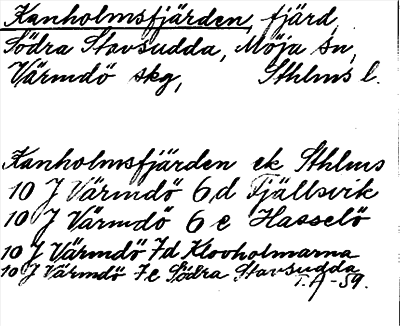 Kanholmsfjärden, fjärd
Södra Stavsudda, Möja sn,
Värmdö skg, Sthlms l.
Kanholmsfjärden ek Sthlms
10 J Värmdö 6 d Fjällsvik
10 J Värmdö 6 e Hasselö
10 J Värmdö 7d Klovholmarna
10 J Värmdö 7e Södra Stavsudda
T. A -59.